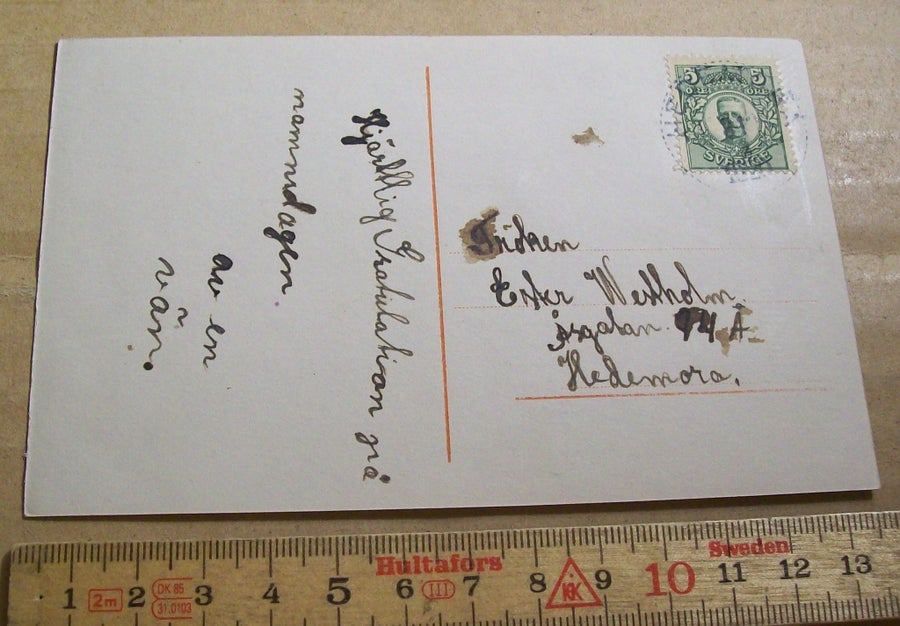 Hjärtlig Gratulation på
namnsdagen.
av en
vän.
5 5
ÖRE ÖRE
SVERIGE
Fröken
Ester Westholm.
Åsgatan A
Hedemora.
Hultafors
Sweden
1 2m 2 DK 85 31.0103 3 4 5 6 III 7 8 9 10 11 12 13